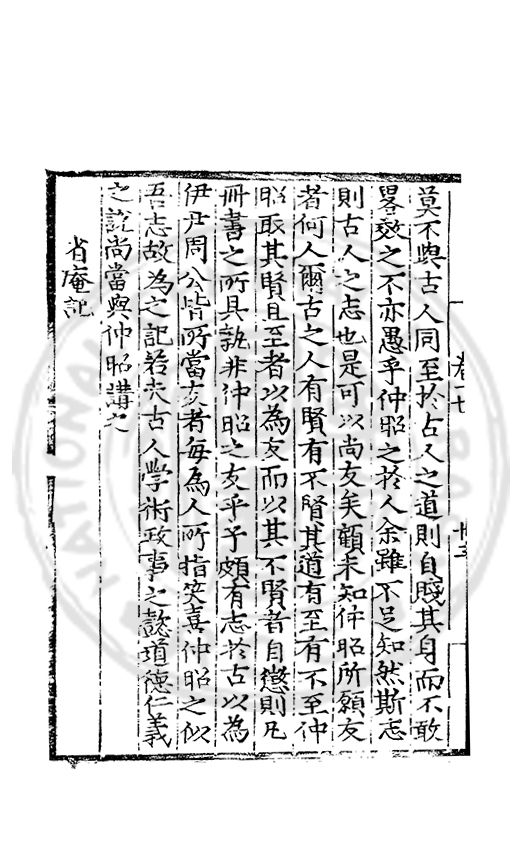 莫不與古人同至扵古人之道則自賤其身而不敢
畧效之不亦愚乎仲昭之扵人余雖不足知然斯志
則古人之志也是可以尚友矣顧未知仲昭所願友
者何人爾古之人有賢有不賢其道有至有不至仲
昭取其賢且至者以為友而以其不賢者自懲則凡
冊書之所具孰非仲昭之友乎予頗有志扵古以為
伊尹周公皆所當友者每為人所指笑喜仲昭之似
吾志故為之記若夫古人學術政事之懿道德仁義
之說尚當與仲昭講之
省庵記
卷一七
NATIONAL